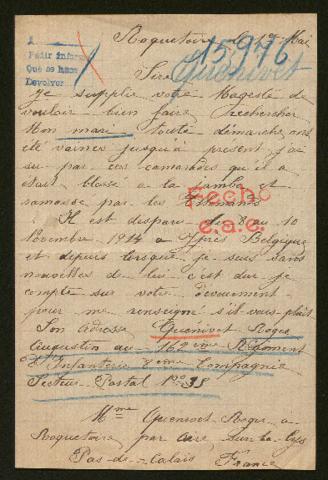 Roquetoire le 1er Mai
A
Pedir informe
Que se hace
Devolver
15976
Quenivet
Sire
Je supplie votre Magesté de
vouloir bien faire rechercher
Mon mari toute démarche ont
été vaines jusqu'à present j'ai
su par ces camarades qu'il a
était blessé a la jambe et
ramassé par les
Fecho
c.a.e.
Il est disparu du 8 au 10
Novembre 1914 a Ypres Belgique
et depuis lorsque je suis sans
nouvelles de lui c'est dur je
compte sur votre dévouement
pour me renseigné s'il-vous-plait
Son adresse Quenivet Roge
Augustin au 162ème Régiment
d'Infanterie 8ème Compagnie
Secteur Postal No 38
Mme Quenivet Roge a
Roquetoire par Aire sur-la-Lys
Pas-de-Calais France